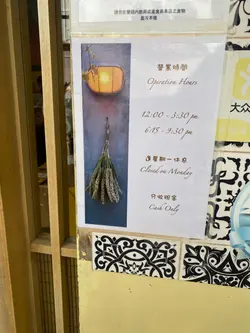 營業時間
Operation Hours
12:00 - 3:30 pm
6:15 - 9:30 pm
逢星期一休息
Closed on Monday
只收現金
Cash Only
大众